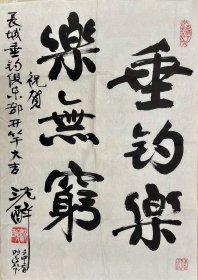 垂钓樂
樂無窮
祝賀
長城垂钓俱乐部开竿大吉
沈醉